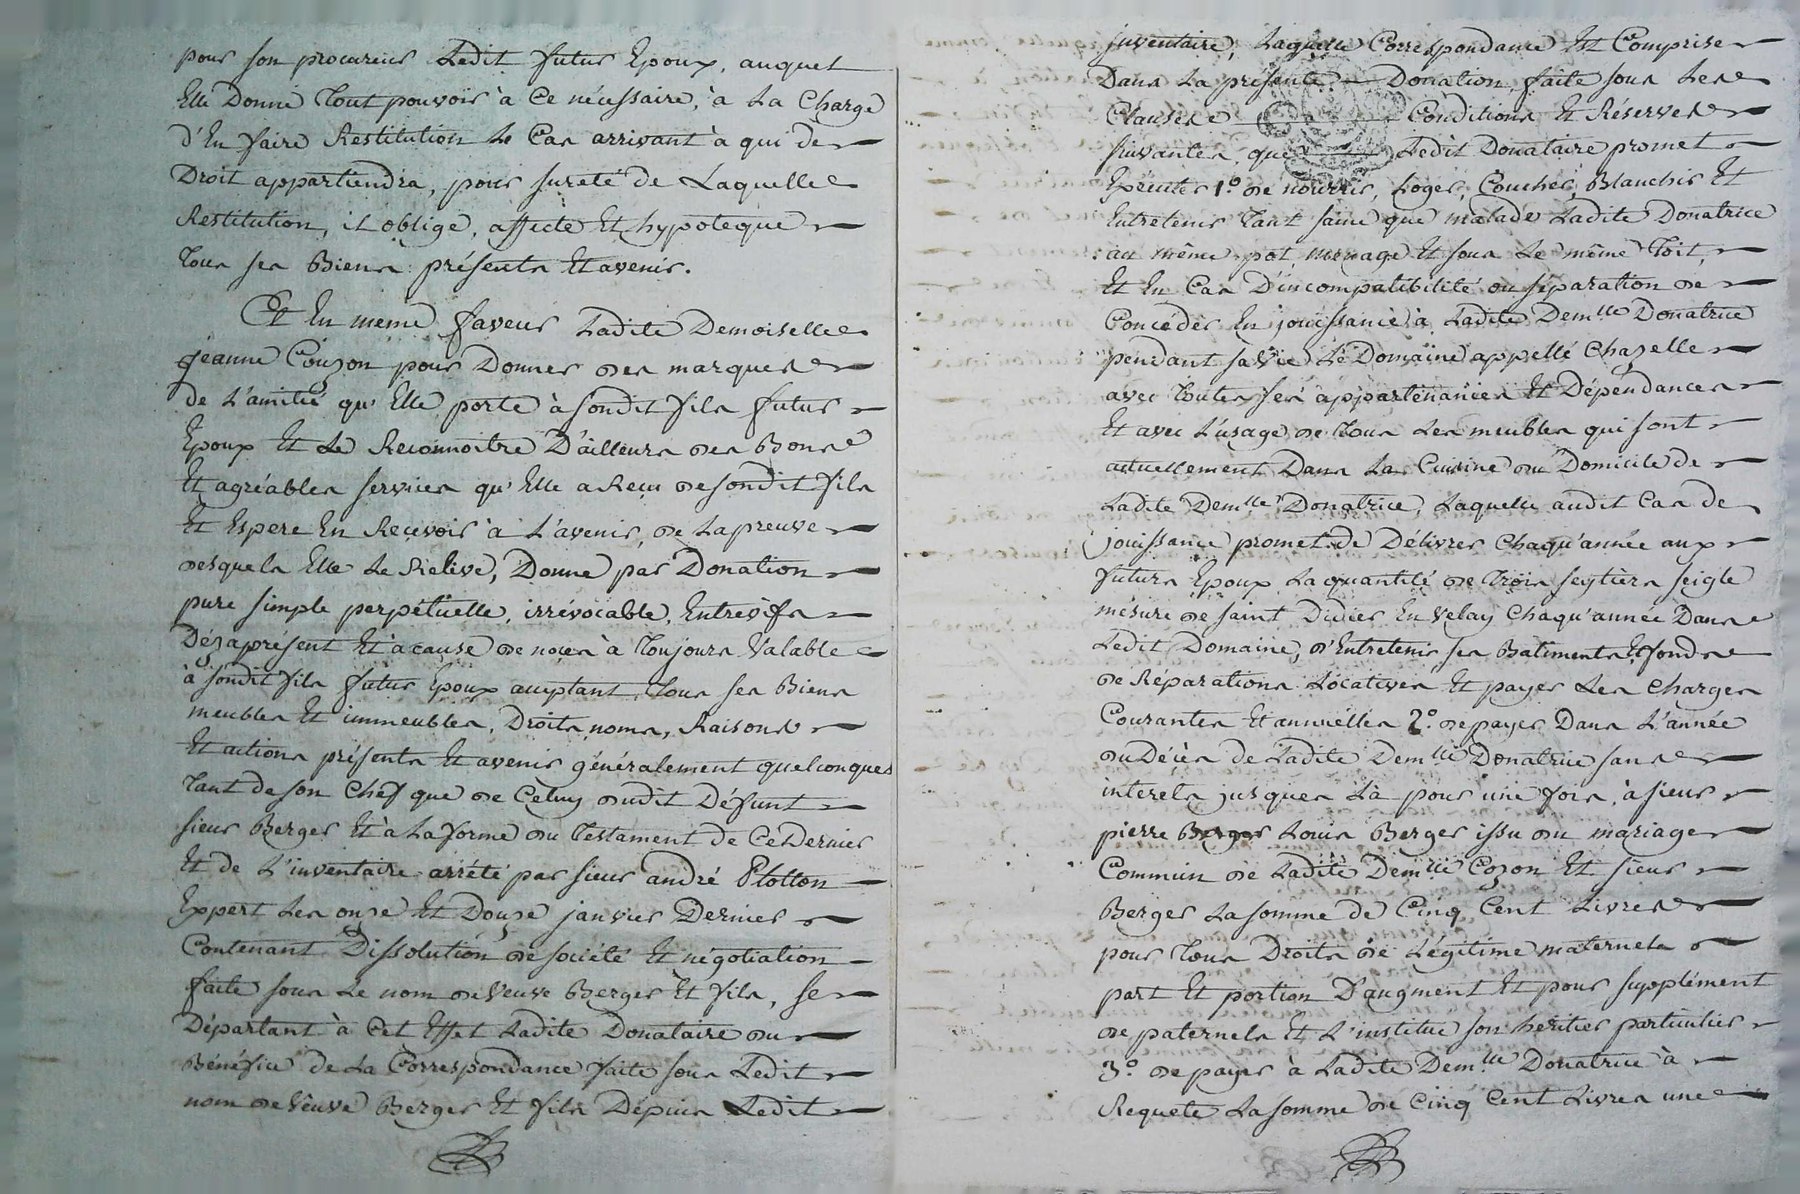 pour son procureur Ledit futur Epoux, auquel
Elle Donne Tout pouvoir à Ce nécessaire, à La Charge
d'En faire Restitution Le Cas arrivant à qui de
Droit appartiendra, pour sureté de Laquelle
Restitution, il oblige, affecte Et hypoteque
Tous ses Biens présents Et avenir.
Et En meme faveur Ladite Demoiselle
jeanne Couzon pour Donner des marques
de L'amitié qu'Elle porte à sondit fils futur
Epoux Et Le Reconnoitre D'ailleurs des Bons
Et agréables services qu'Elle a Reçu de sondit fils
Et Espere En Recevoir à L'avenir, de La preuve
desquels Elle Le Releve, Donne par Donation
pure simple perpétüelle, irrévocable, Entrevifs
Dézaprésent Et à cause de noces à Toujours Valable
à sondit fils futur Epoux acceptant Tous ses Biens
meubles Et immeubles, Droits, noms, Raisons
Et actions présents Et avenir généralement quelconques
Tant de son Chef que de Celuy dudit Défunt
sieur Berger Et à La forme du Testament de Ce Dernier
Et de L'inventaire arrété par sieur andré Plotton
Expert Les onze Et Douze janvier Dernier
Contenant Dissolution de société Et négotiation
faite sous Le nom de Veuve Berger Et fils, se
Départant à Cet Effet Ladite Donataire du
Bénéfice de La Correspondance faite sous Ledit
nom de Veuve Berger Et fils Depuis Ledit
inventaire, Laquelle Correspondance Est Comprise
Dans La présente Donation, faite sous Les
Clauses Conditions Et Réserves
suivantes, que Ledit Donataire promet
Exécuter 1.° de nourrir, Loger, Coucher, Blanchir Et
Entretenir Tant saine que malade Ladite Donatrice
au même pot, menage Et sous Le même Toit,
Et En Cas D'incompatibilité ou séparation de
Concéder En jouissance à Ladite Dem.lle Donatrice
pendant sa vie Le Domaine appellé Chazelle
avec Toutes ses appartenances Et Dépendances
Et avec L'usage de Tous Les meubles qui sont
actuellement Dans La Cuisine du Domicile de
Ladite Dem.lle Donatrice, Laquelle audit Cas de
jouissance promet de Délivrer Chaqu'année aux
futurs Epoux La quantité de Trois seytiers seigle
mésure de saint Didier En Velay Chaqu'année Dans
Ledit Domaine, d'Entretenir ses Batiments Et fonds
de Réparations Locatives Et payer Les Charges
Courantes Et annuelles 2.° de payer Dans L'année
du Décès de Ladite Dem.lle Donatrice sans
interets jusques Là pour une fois, à sieur
pierre Berger Louis Berger issu du mariage
Commun de Ladite Dem.lle Cozon Et sieur
Berger La somme de Cinq Cent Livres
pour Tous Droits de Légitime maternels
part Et portion D'augment Et pour supplément
de paternels Et L'institue son heritier particulier
3.° de payer à Ladite Dem.lle Donatrice à
Requete La somme de Cinq Cent Livres une